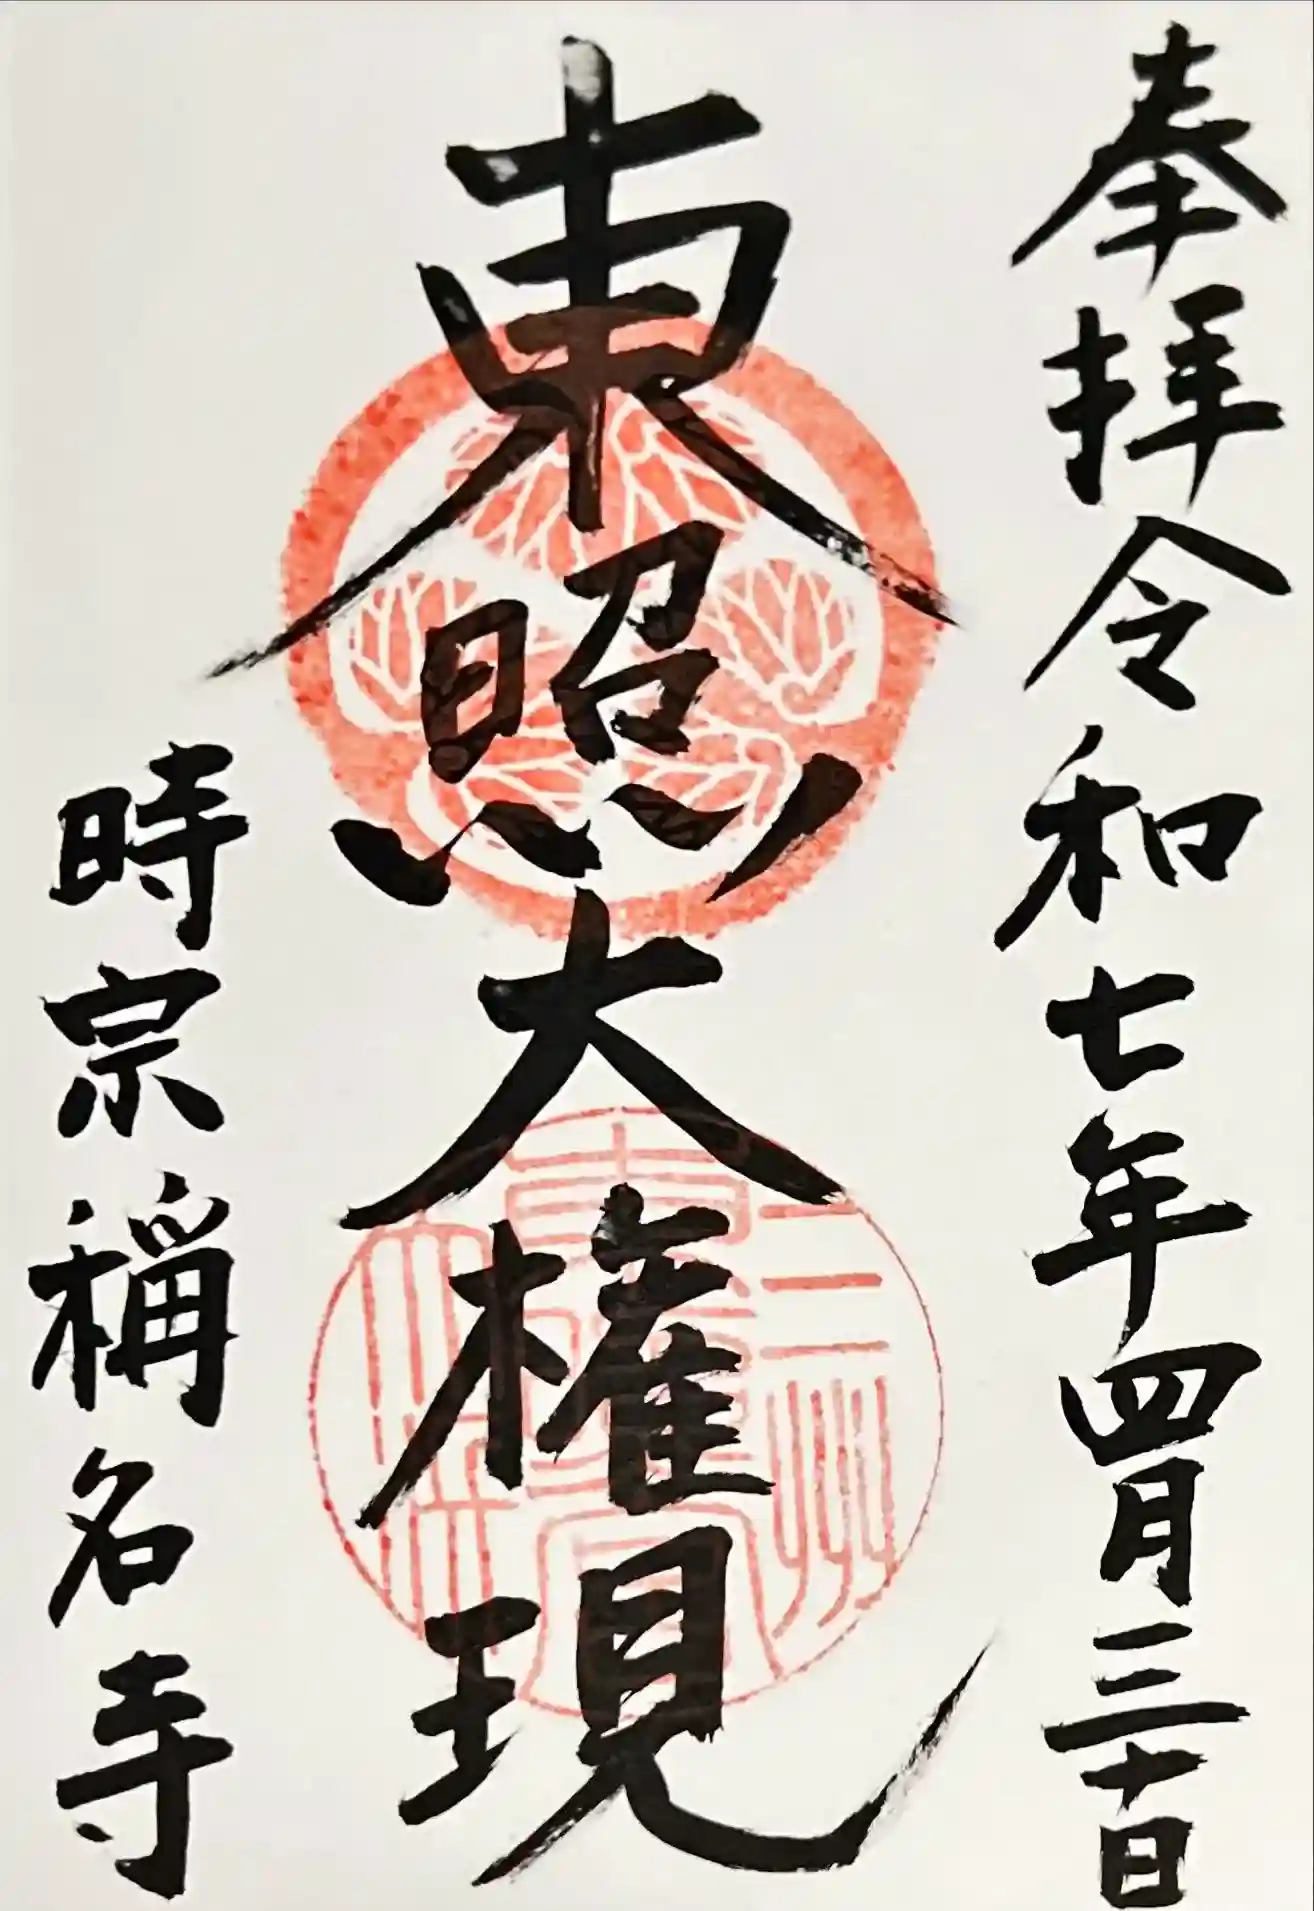 奉拝令和七年四月三十日
東照大権現
時宗稱名寺